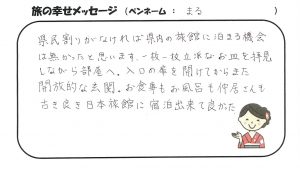 旅の幸せメッセージ（ペンネーム： まる ）
県民割りがなければ県内の旅館に泊まる機会
は無かったと思います。一枚一枚立派なお皿を拝見
しながら部屋へ。入口の扉を開けてからまた
開放的な玄関。お食事もお風呂も仲居さんも
古き良き日本旅館に宿泊出来て良かた